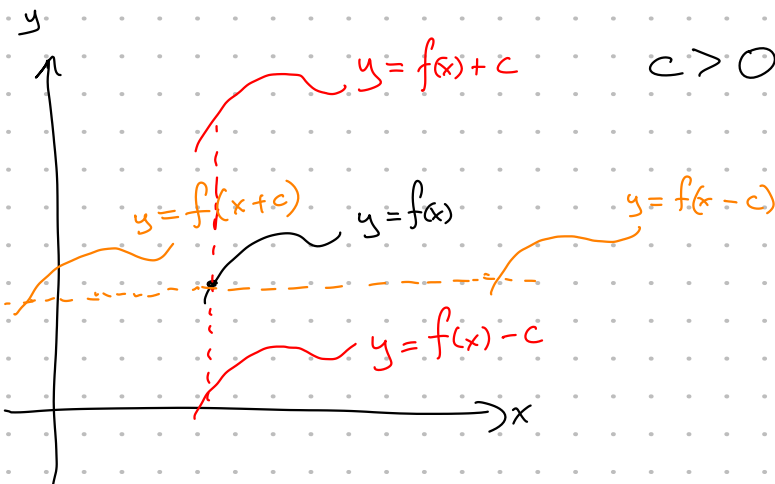 y
y = f(x) + c
c > 0
y = f(x+c)
y = f(x)
y = f(x - c)
y = f(x) - c
x